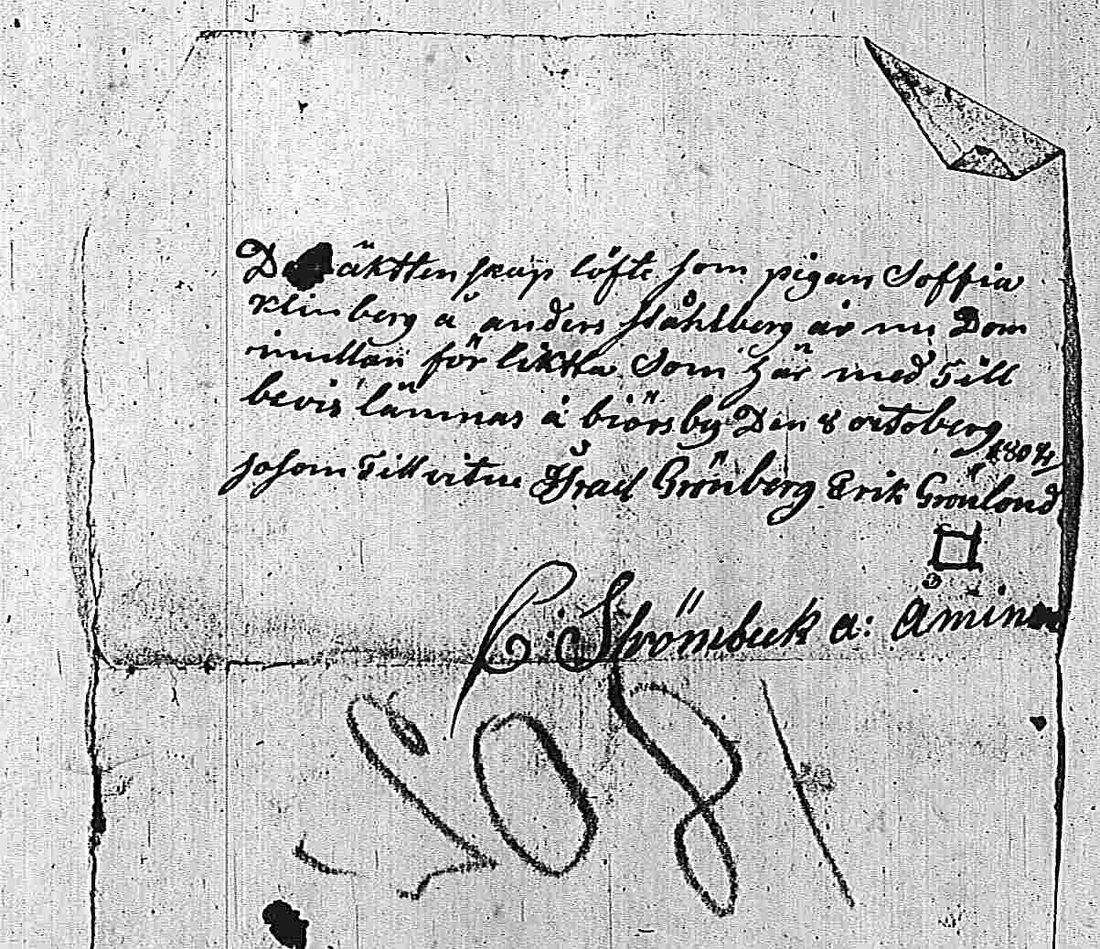 De äkttenskap löfte som pigan Soffia
Klinberg å anders ståhlberg är nu Dom
mellan för liktta Som här med Till
bevis lämnas å biörsby Den 8 octoberg
1807
sosom Till vitne Israel Grönberg Erik Grönlond
C: Strömbeck a: Åminne
1807